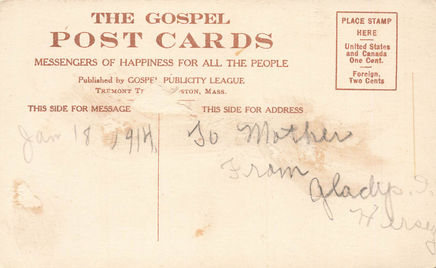 THE GOSPEL
POST CARDS
MESSENGERS OF HAPPINESS FOR ALL THE PEOPLE
Published by GOSPEL PUBLICITY LEAGUE
TREMONT MASS.
PLACE STAMP
HERE
United States
and Canada
One Cent.
Foreign,
Two Cents
THIS SIDE FOR MESSAGE
THIS SIDE FOR ADDRESS
Jan 18 1914
To Mother
From
Gladys
Hersey